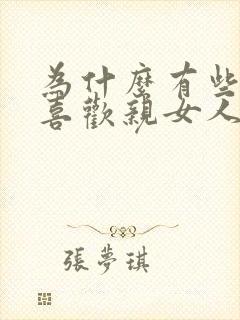 為什麼有些
喜歡親女人
張夢琪